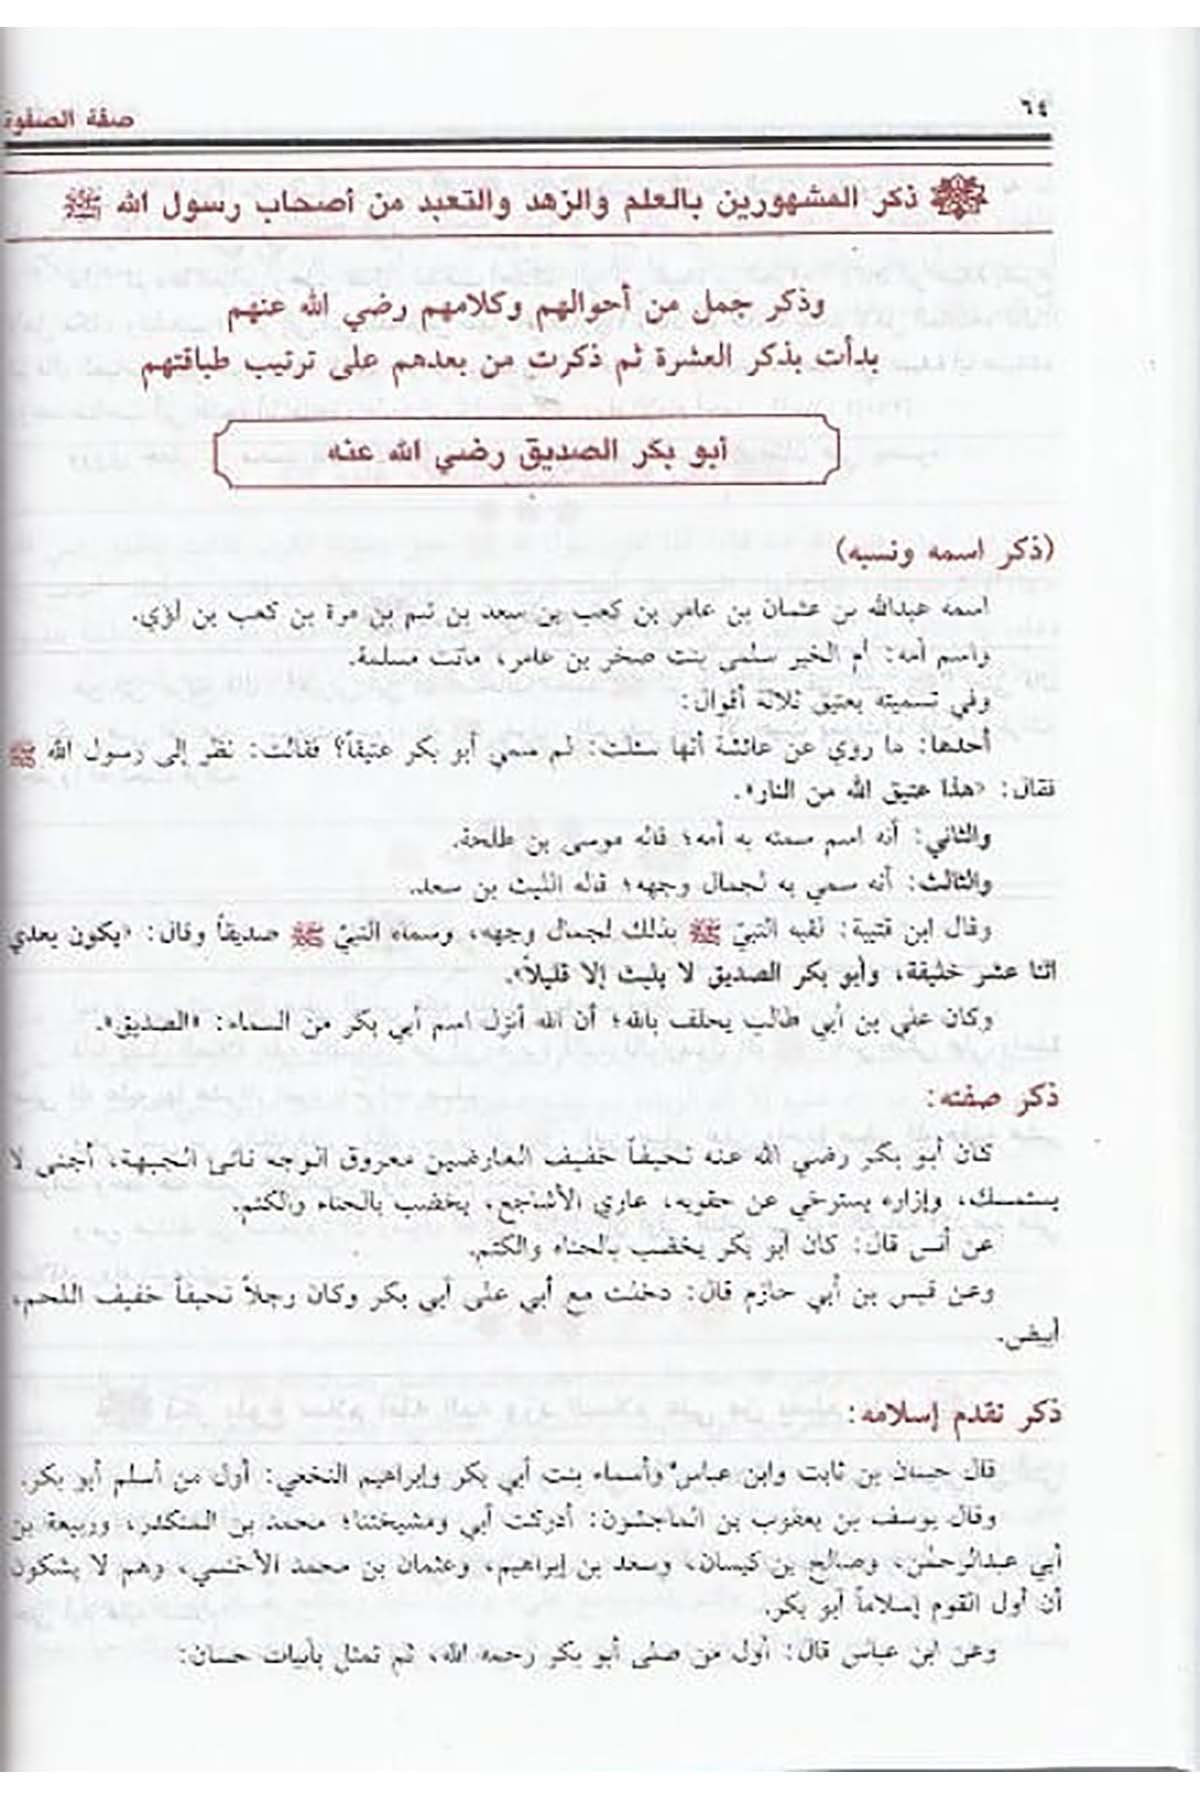 ٦٤
صفة الصفوة
ذكر المشهورين بالعلم والزهد والتعبد من أصحاب رسول الله ﷺ
وذكر جمل من أحوالهم وكلامهم رضي الله عنهم
بدأت بذكر العشرة ثم ذكرت من بعدهم على ترتيب طباقتهم
أبو بكر الصديق رضي الله عنه
(ذكر اسمه ونسبه)
اسمه عبدالله بن عثمان بن عامر بن كعب بن سعد بن تيم بن مرة بن كعب بن لؤي.
واسم أمه: أم الخير سلمى بنت صخر بن عامر، ماتت مسلمة.
وفي تسميته بعتيق ثلاثة أقوال:
أحدها: ما روي عن عائشة أنها سئلت: لم سمي أبو بكر عتيقاً؟ فقالت: نظر إلى رسول الله ﷺ
فقال: «هذا عتيق الله من النار».
والثاني: أنه اسم سمته به أمه؛ قاله موسى بن طلحة.
والثالث: أنه سمي به لجمال وجهه؛ قاله الليث بن سعد.
وقال ابن قتيبة: لقبه النبيّ ﷺ بذلك لجمال وجهه، وسماه النبيّ ﷺ صديقاً وقال: «يكون بعدي
اثنا عشر خليفة، وأبو بكر الصديق لا يلبث إلا قليلاً».
وكان علي بن أبي طالب يحلف بالله؛ أن الله أنزل اسم أبي بكر من السماء: «الصديق».
ذكر صفته:
كان أبو بكر رضي الله عنه نحيفاً خفيف العارضين معروق الوجه ناتئ الجبهة، أجنى لا
يستمسك، وإزاره يسترخي عن حقويه، عاري الأشاجع، يخضب بالحناء والكتم.
عن أنس قال: كان أبو بكر يخضب بالحناء والكتم.
وعن قيس بن أبي حازم قال: دخلت مع أبي على أبي بكر وكان رجلاً نحيفاً خفيف اللحم،
أبيض.
ذكر تقدم إسلامه:
قال حسان بن ثابت وابن عباس وأسماء بنت أبي بكر وإبراهيم النخعي: أول من أسلم أبو بكر.
وقال يوسف بن يعقوب بن الماجشون: أدركت أبي ومشيختنا؛ محمد بن المنكدر، وربيعة بن
أبي عبدالرحمٰن، وصالح بن كيسان، وسعد بن إبراهيم، وعثمان بن محمد الأخنسي، وهم لا يشكون
أن أول القوم إسلاماً أبو بكر.
وعن ابن عباس قال: أول من صلى أبو بكر رحمه الله، ثم تمثل بأبيات حسان: